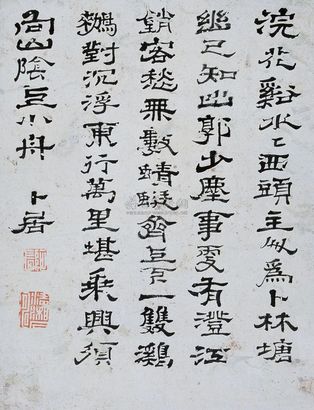 浣花谿水〻西頭主人爲卜林塘
幽已知出郭少塵事更有澄江
銷客愁無數蜻蜓齊上下一雙鸂
鶒對沉浮東行萬里堪乘興須
向山陰上小舟 卜居